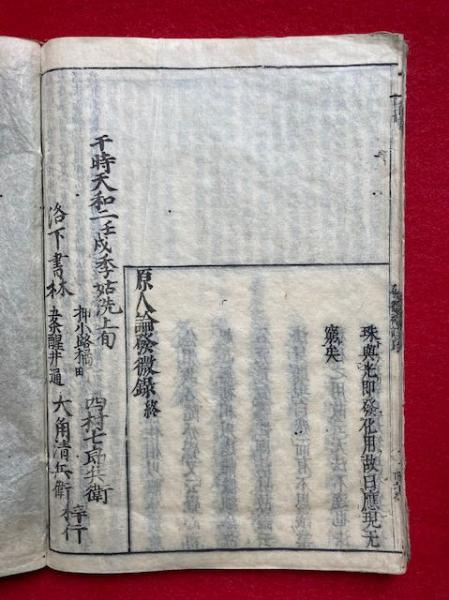 珠與光即發化用故曰應現无
窮矣
原人論發微錄終
于時天和二壬戌季姑洗上旬
押小路橘田 西村七郎兵衛
洛下書林
五条醒井通 大角清兵衛 梓行